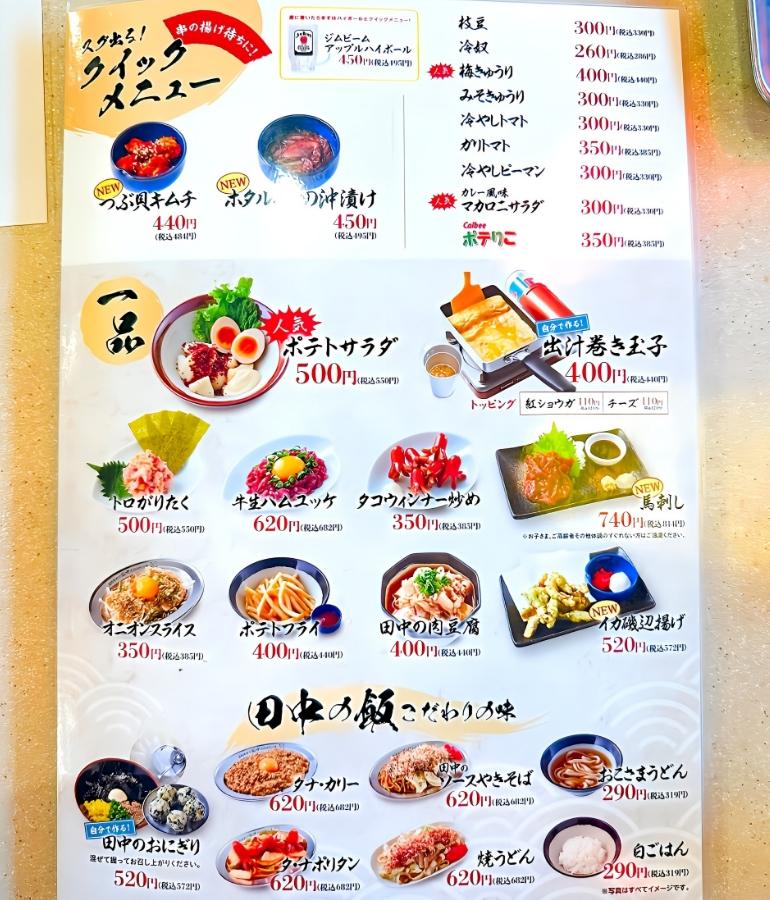 スグ出る!
クイック
メニュー
串の揚げ待ちに!
席に着いたらまずはハイボールとクイックメニュー!
ジムビーム
アップルハイボール
450円(税込495円)
NEW
つぶ貝キムチ
440円
(税込484円)
NEW
ホタル の沖漬け
450円
(税込495円)
枝豆 300円(税込330円)
冷奴 260円(税込286円)
人気 梅きゅうり 400円(税込440円)
みそきゅうり 300円(税込330円)
冷やしトマト 300円(税込330円)
ガリトマト 350円(税込385円)
冷やしピーマン 300円(税込330円)
カレー風味
人気 マカロニサラダ 300円(税込330円)
Calbee
ポテりこ 350円(税込385円)
一品
人気
ポテトサラダ
500円(税込550円)
自分で作る!
出汁巻き玉子
400円(税込440円)
トッピング 紅ショウガ 110円 チーズ 110円
トロがりたく
500円(税込550円)
牛生ハムユッケ
620円(税込682円)
タコウィンナー炒め
350円(税込385円)
NEW
馬刺し
740円(税込814円)
オニオンスライス
350円(税込385円)
ポテトフライ
400円(税込440円)
田中の肉豆腐
400円(税込440円)
NEW
イカ磯辺揚げ
520円(税込572円)
田中の飯 こだわりの味
自分で作る!
田中のおにぎり
混ぜて握ってお召し上がりください。
520円(税込572円)
タナ・カリー
620円(税込682円)
田中の
ソースやきそば
620円(税込682円)
おこさまうどん
290円(税込319円)
タ・ナポリタン
620円(税込682円)
焼うどん
620円(税込682円)
白ごはん
290円(税込319円)
※写真はすべてイメージです。